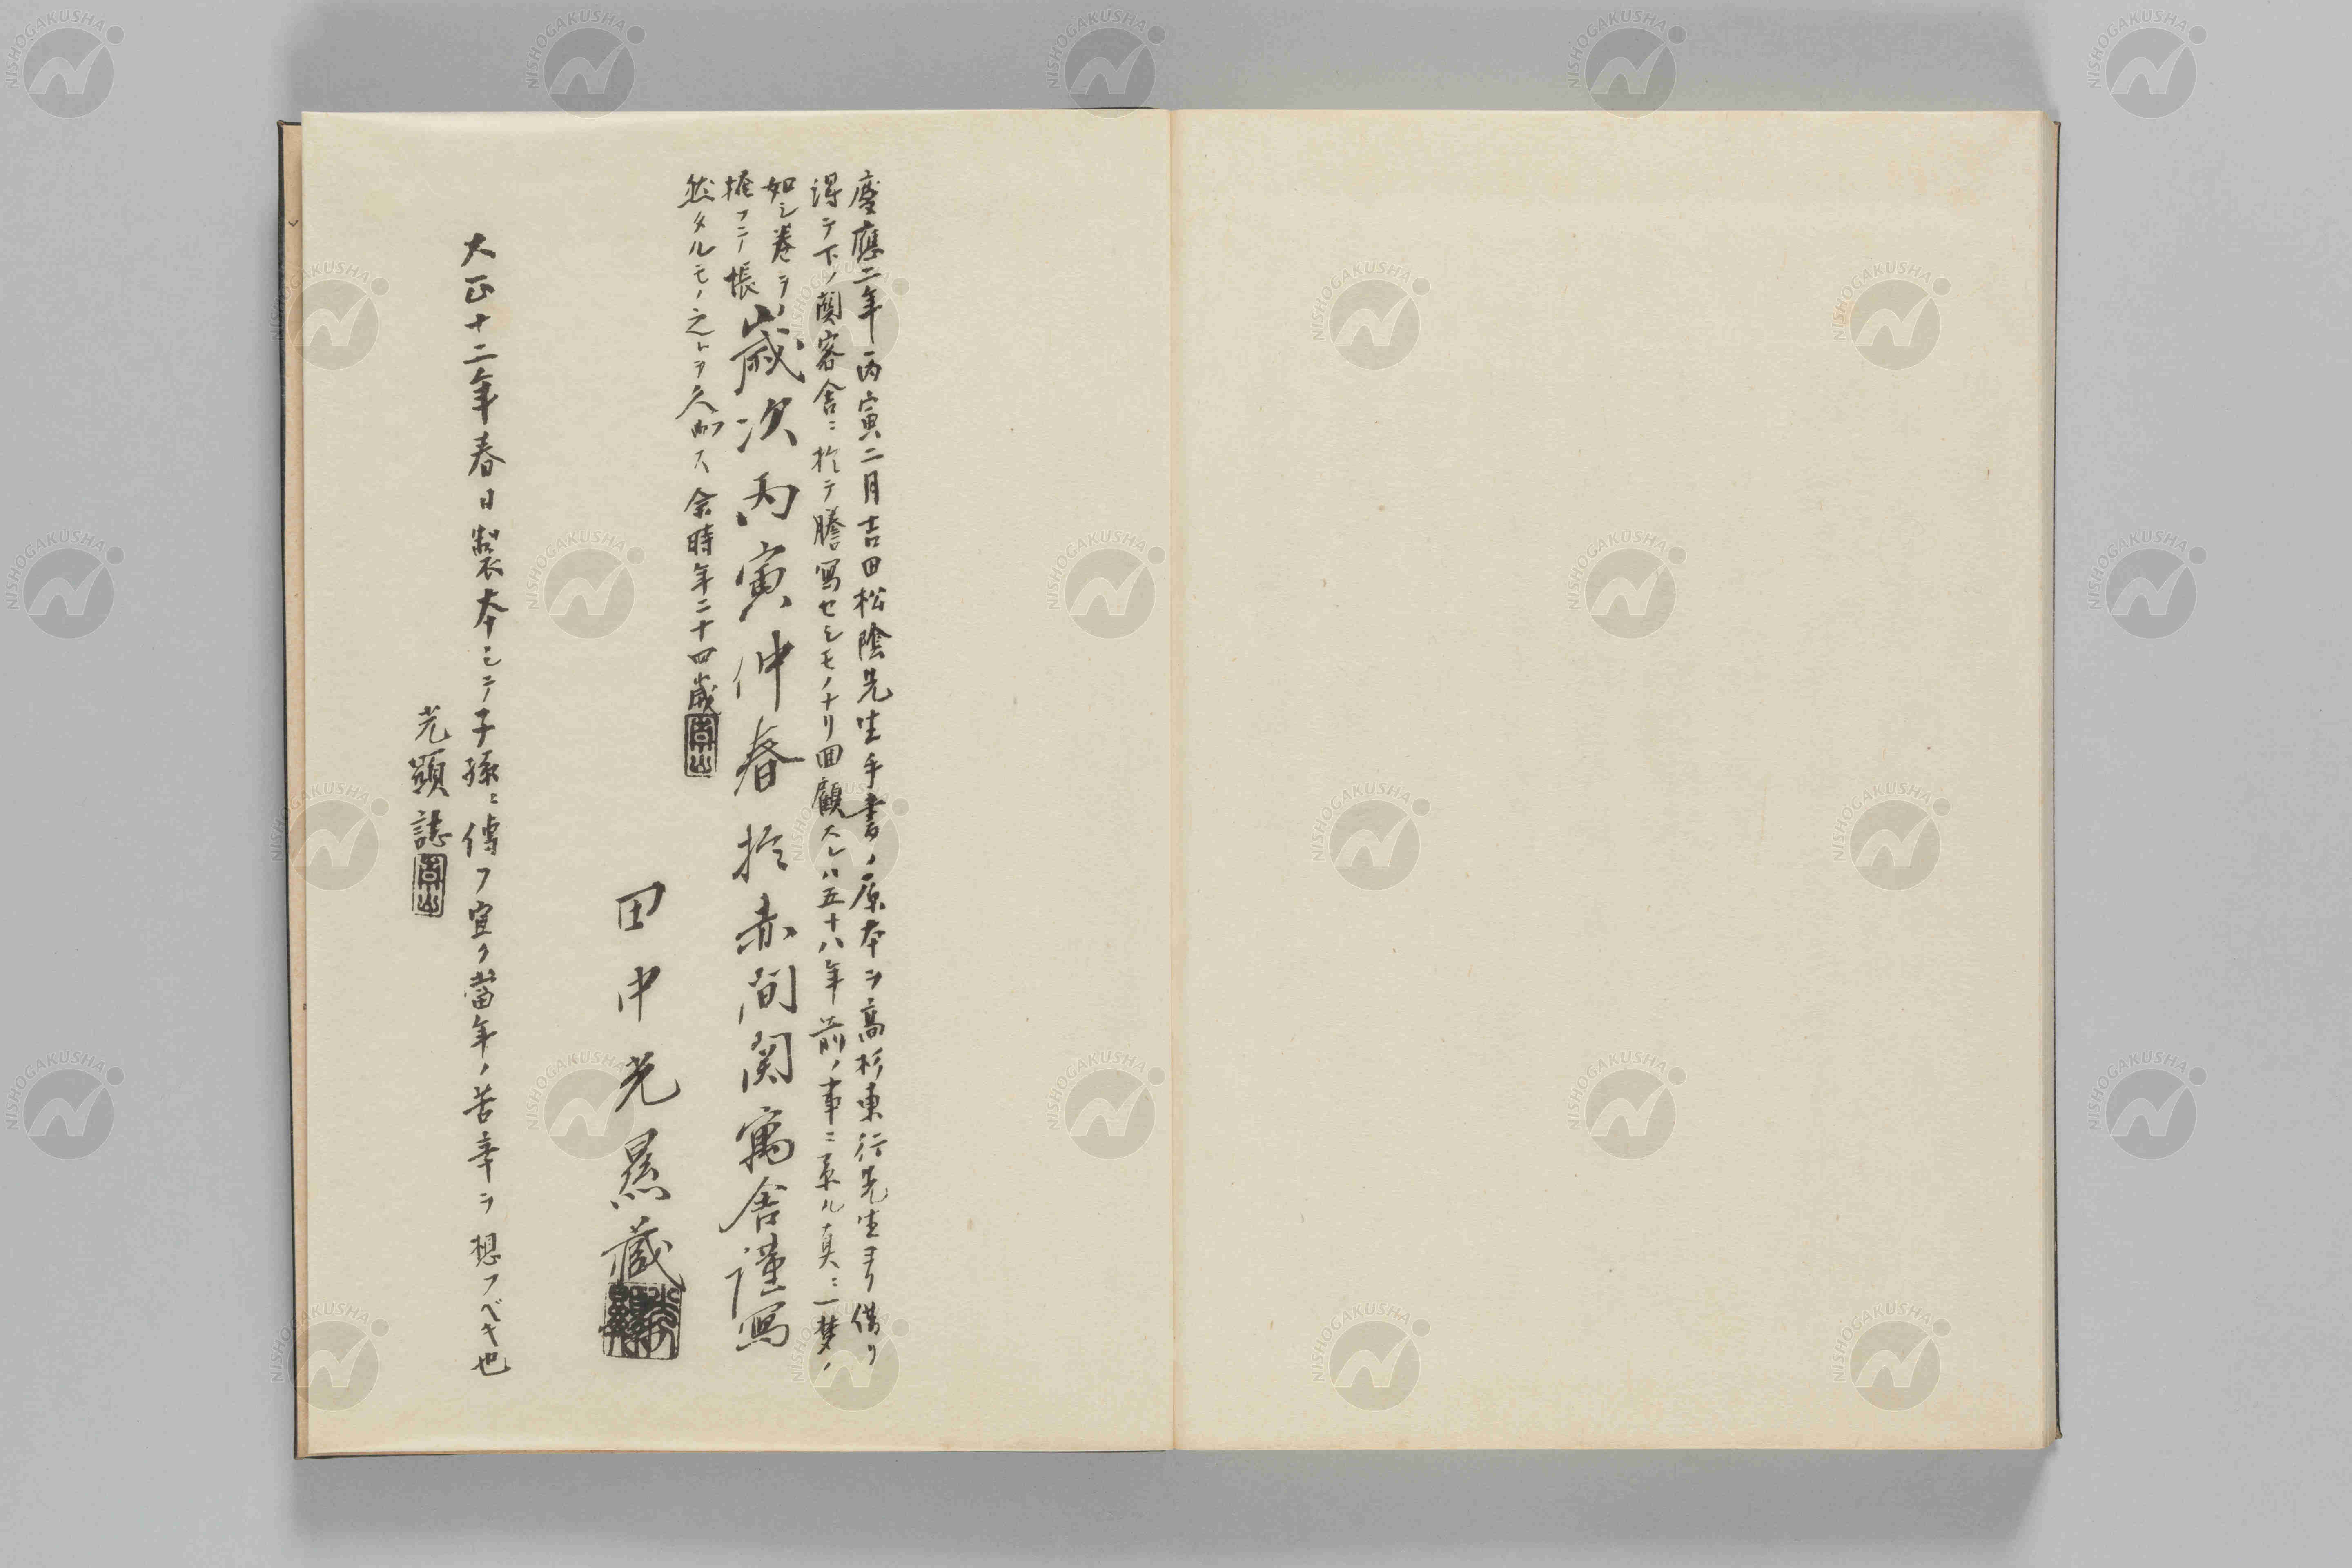 慶應二年丙寅二月吉田松陰先生手書ノ原本ヲ高杉東行先生ヨリ借リ
得テ下ノ関客舎ニ於テ謄寫セシモノナリ回顧スレハ五十八年前ノ事ニ係ル真ニ一夢ノ
如シ巻ヲ
掩フニ帳
然タルモノ之レヲ久フス余時年二十四歳
歳次丙寅仲春於赤間関寓舎謹寫
田中光顯藏
大正十二年春日製本シテ子孫ニ傳フ宜ク當年ノ苦辛ヲ想フベキ也
光顕誌
青山
青山
NISHOGAKUSHA